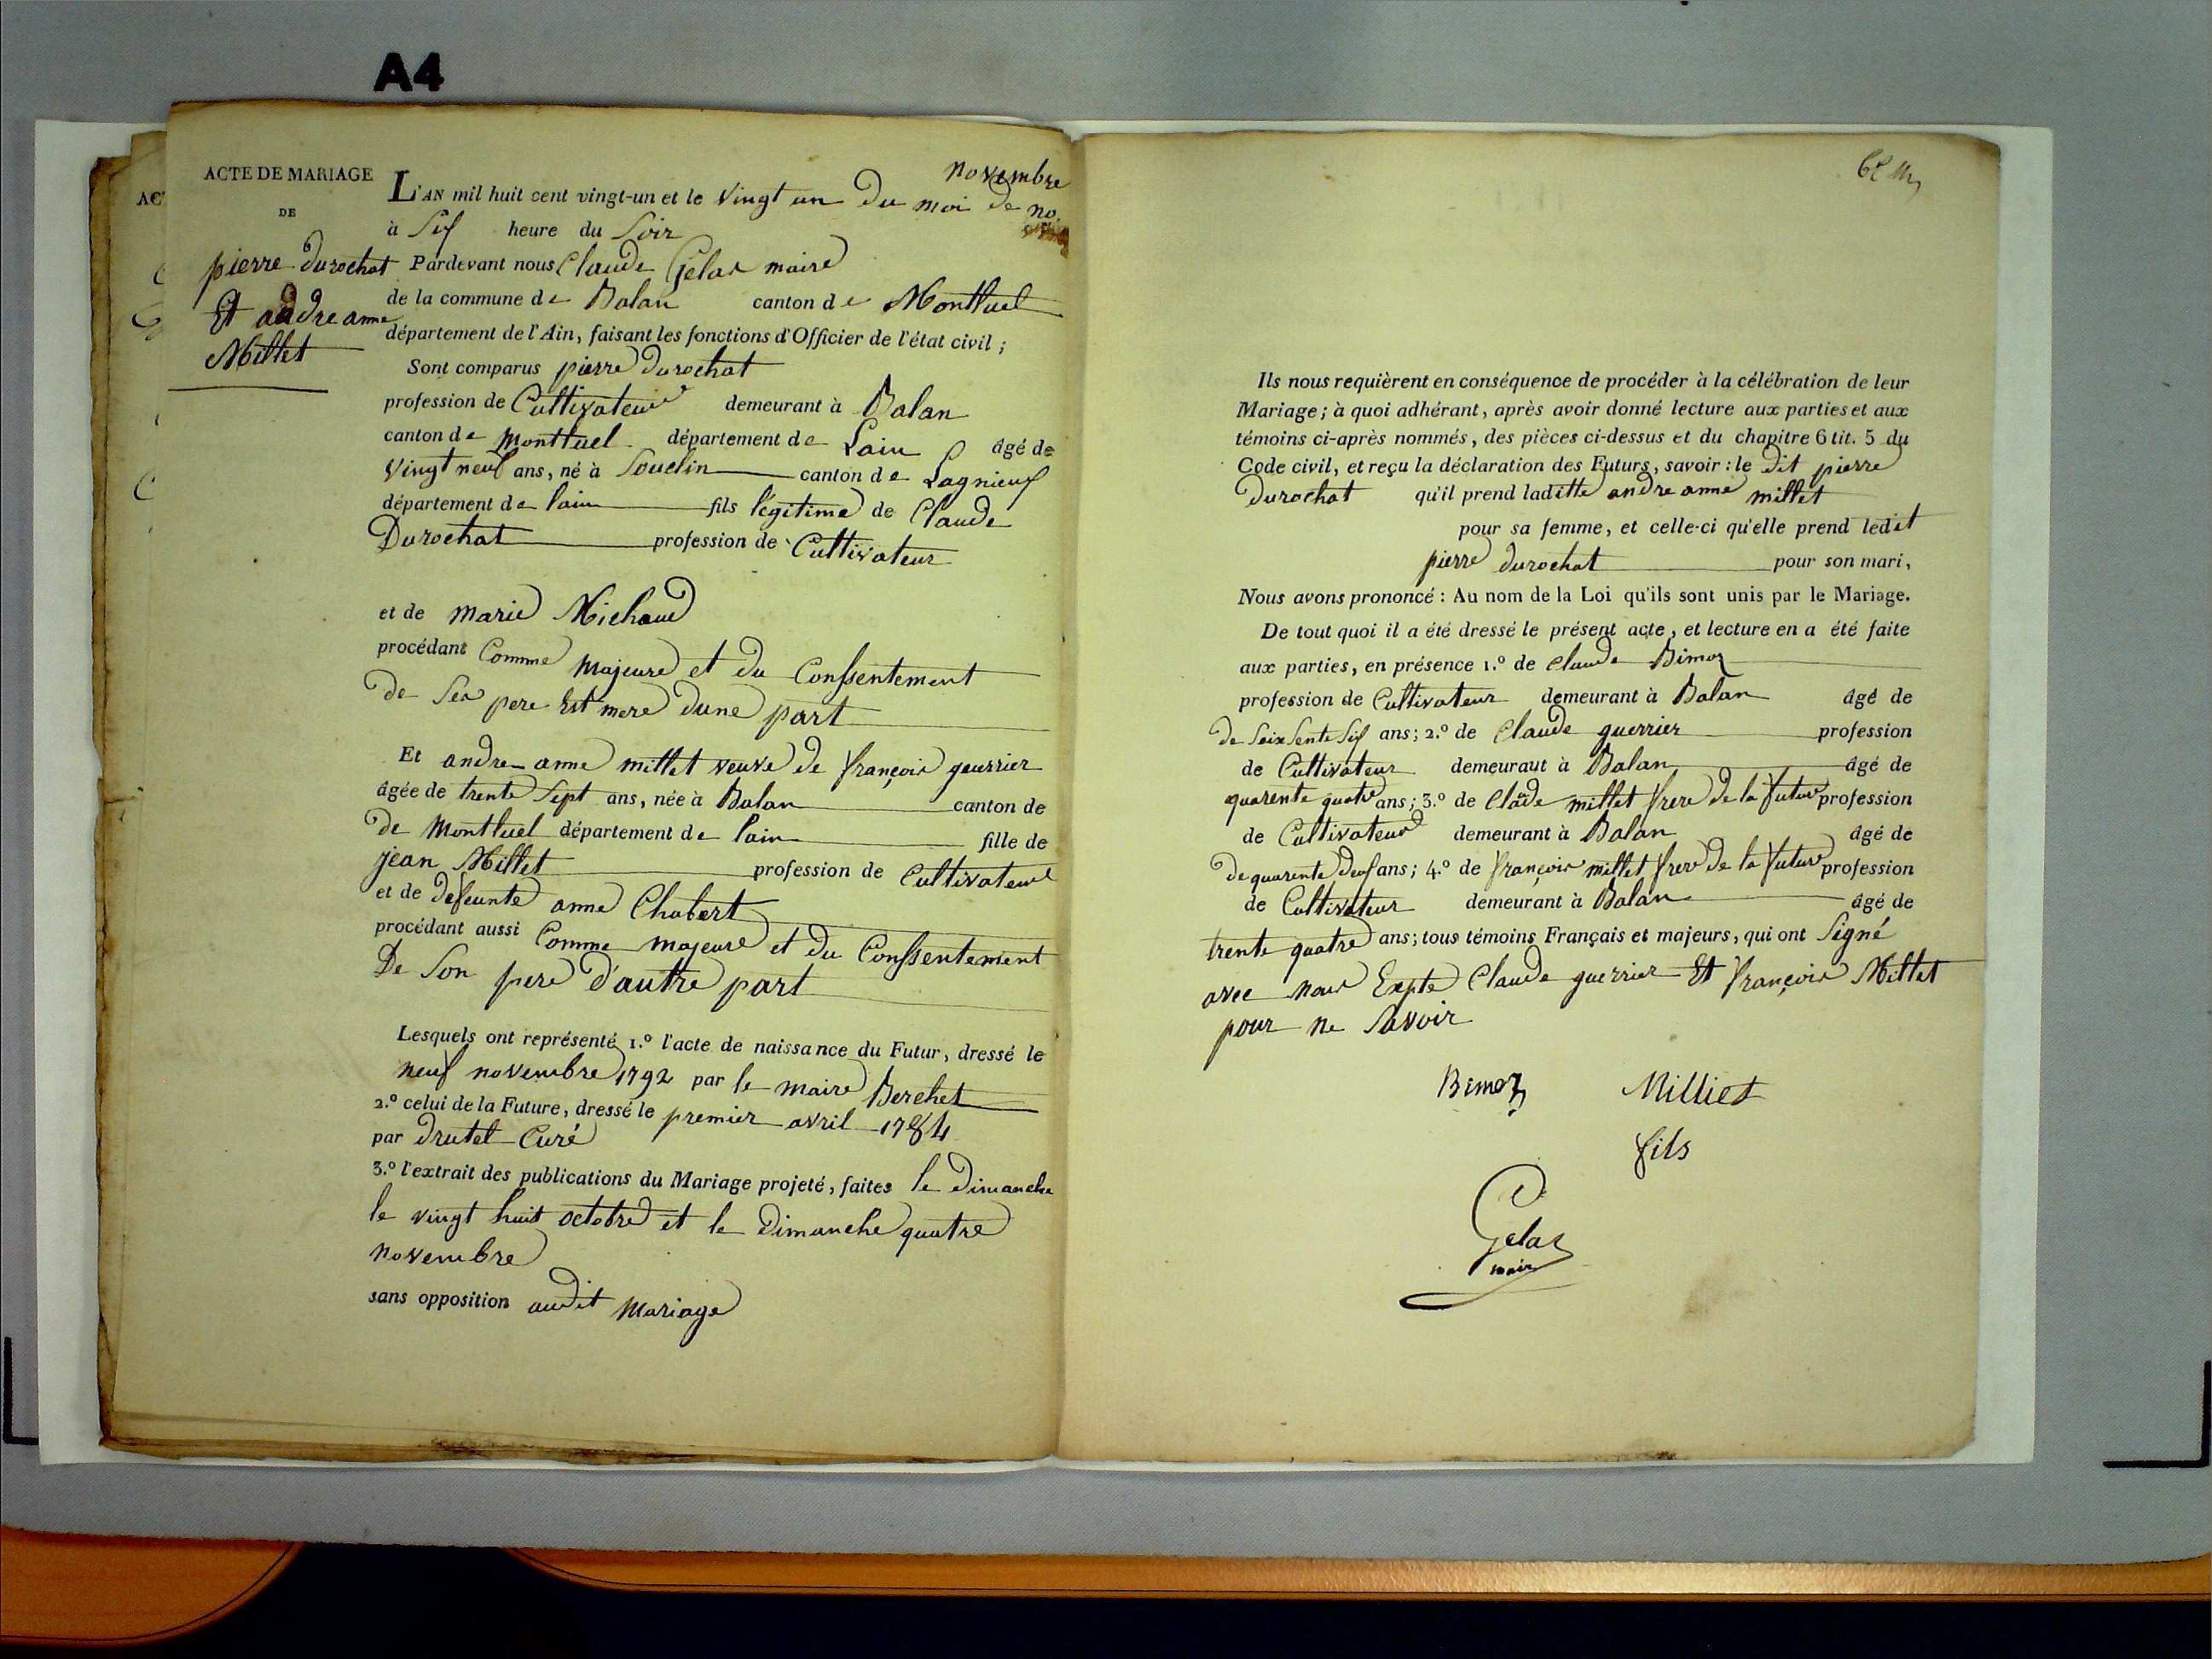 A4
ACTE DE MARIAGE
DE
pierre durochat
Et andre anne
Millet
novembre
L'AN mil huit cent vingt-un et le vingt un du moi de no
à Six heure du Soir
Pardevant nous Claude Gelas maire
de la commune de Balan canton de Montluel
département de l'Ain, faisant les fonctions d'Officier de l'état civil ;
Sont comparus pierre durochat
profession de Cultivateur demeurant à Balan
canton de Montluel département de Lain âgé de
vingt neuf ans, né à Souclin canton de Lagnieux
département de lain fils légitime de Claude
Durochat profession de Cultivateur
et de marie Michaud
procédant Comme majeure et du Conssentement
de Ses pere Est mere dune part
Et andre anne millet veuve de françois geurrier
âgée de trente Sept ans, née à Balan canton de
de Montluel département de lain fille de
jean Millet profession de Cultivateur
et de defeunte anne Chabert
procédant aussi Comme majeure et du Conssentement
De Son pere d'autre part
Lesquels ont représenté 1.º l'acte de naissance du Futur, dressé le
neuf novembre 1792 par le maire Berchet
2.º celui de la Future, dressé le premier avril 1784
par drutel Curé
3.º l'extrait des publications du Mariage projeté, faites le Dimanche
le vingt huit octobre et le Dimanche quatre
novembre
sans opposition audit Mariage
Ils nous requièrent en conséquence de procéder à la célébration de leur
Mariage ; à quoi adhérant, après avoir donné lecture aux parties et aux
témoins ci-après nommés, des pièces ci-dessus et du chapitre 6 tit. 5 du
Code civil, et reçu la déclaration des Futurs, savoir : le dit pierre
durochat qu'il prend laditte andre anne millet
pour sa femme, et celle-ci qu'elle prend ledit
pierre durochat pour son mari,
Nous avons prononcé : Au nom de la Loi qu'ils sont unis par le Mariage.
De tout quoi il a été dressé le présent acte, et lecture en a été faite
aux parties, en présence 1.º de Claude Bimoz
profession de Cultivateur demeurant à Balan âgé de
de Soixsente Six ans ; 2.º de Claude guerrier profession
de Cultivateur demeuraut à Balan âgé de
quarente quatre ans ; 3.º de Claude millet frere de la future profession
de Cultivateur demeurant à Balan âgé de
de quarente deux ans ; 4.º de françois millet frere de la future profession
de Cultivateur demeurant à Balan âgé de
trente quatre ans ; tous témoins Français et majeurs, qui ont Signé
avec nous Expte Claude guerrier Et françois Millet
pour ne Savoir
Bimoz Milliet
fils
Gelas
mair